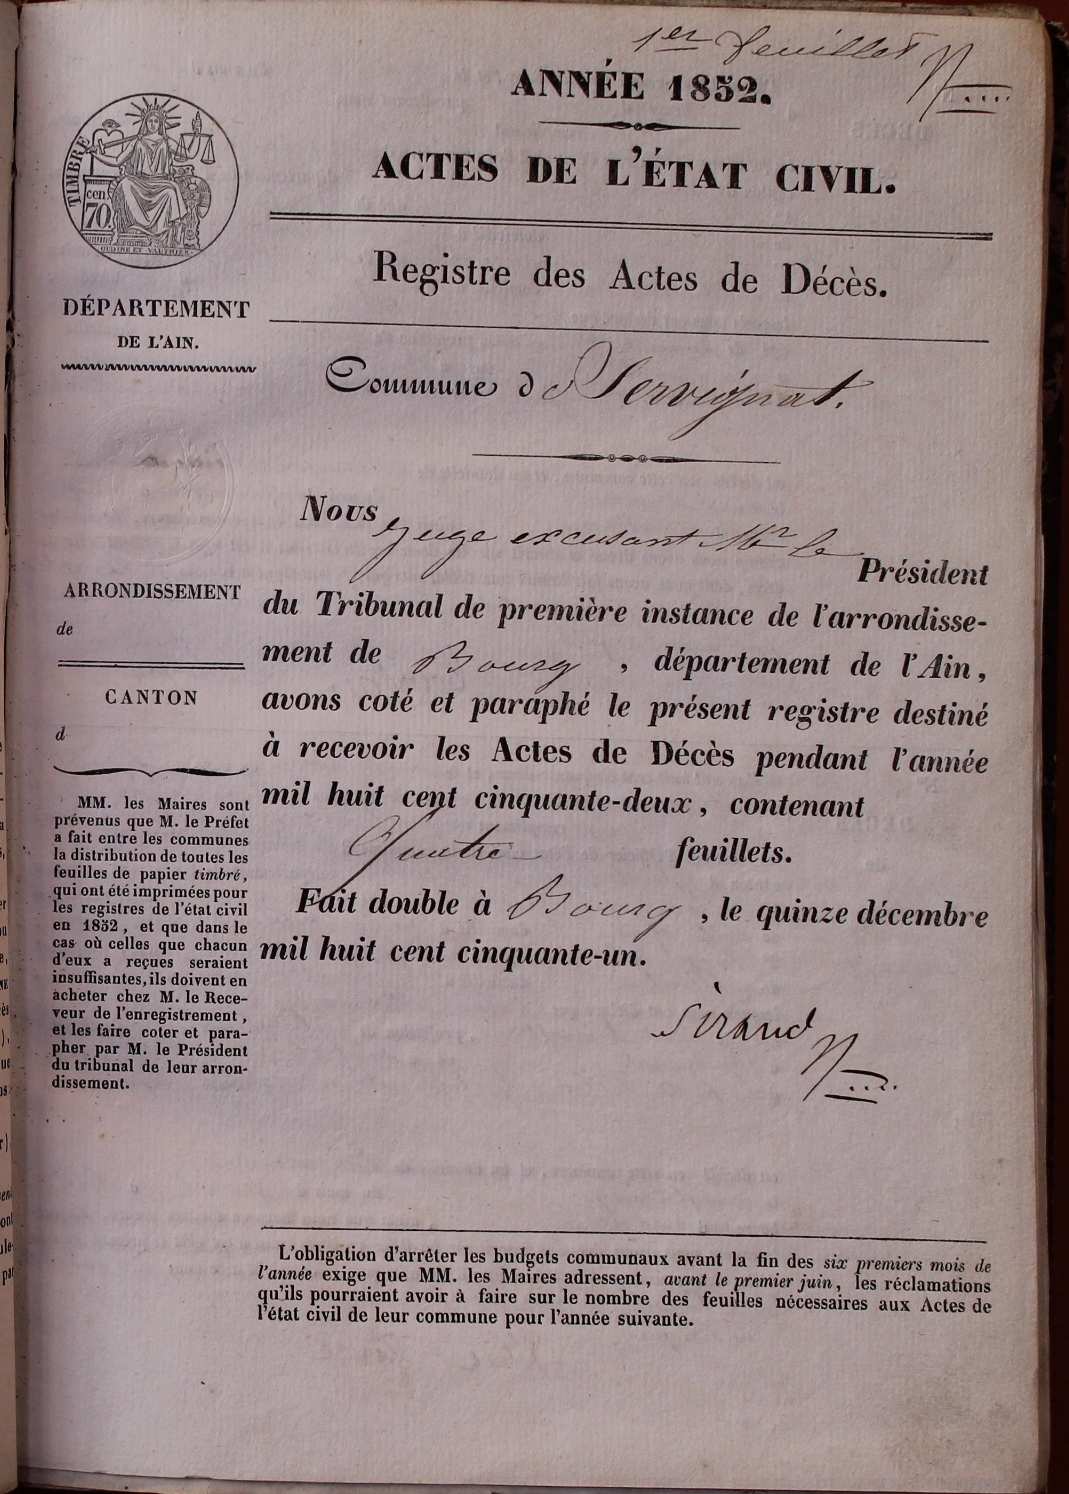 1er feuillet
ANNÉE 1852.
ACTES DE L'ÉTAT CIVIL.
TIMBRE
cen
70.
Registre des Actes de Décès.
DÉPARTEMENT
DE L'AIN.
Commune de Servignat.
Nous juge excusant Mr le
Président
du Tribunal de première instance de l'arrondisse-
ment de Bourg, département de l'Ain,
avons coté et paraphé le présent registre destiné
à recevoir les Actes de Décès pendant l'année
mil huit cent cinquante-deux, contenant
Quatre feuillets.
Fait double à Bourg, le quinze décembre
mil huit cent cinquante-un.
Sirand
ARRONDISSEMENT
de
CANTON
d
MM. les Maires sont
prévenus que M. le Préfet
a fait entre les communes
la distribution de toutes les
feuilles de papier timbré,
qui ont été imprimées pour
les registres de l'état civil
en 1852, et que dans le
cas où celles que chacun
d'eux a reçues seraient
insuffisantes, ils doivent en
acheter chez M. le Rece-
veur de l'enregistrement,
et les faire coter et para-
pher par M. le Président
du tribunal de leur arron-
dissement.
L'obligation d'arrêter les budgets communaux avant la fin des six premiers mois de
l'année exige que MM. les Maires adressent, avant le premier juin, les réclamations
qu'ils pourraient avoir à faire sur le nombre des feuilles nécessaires aux Actes de
l'état civil de leur commune pour l'année suivante.